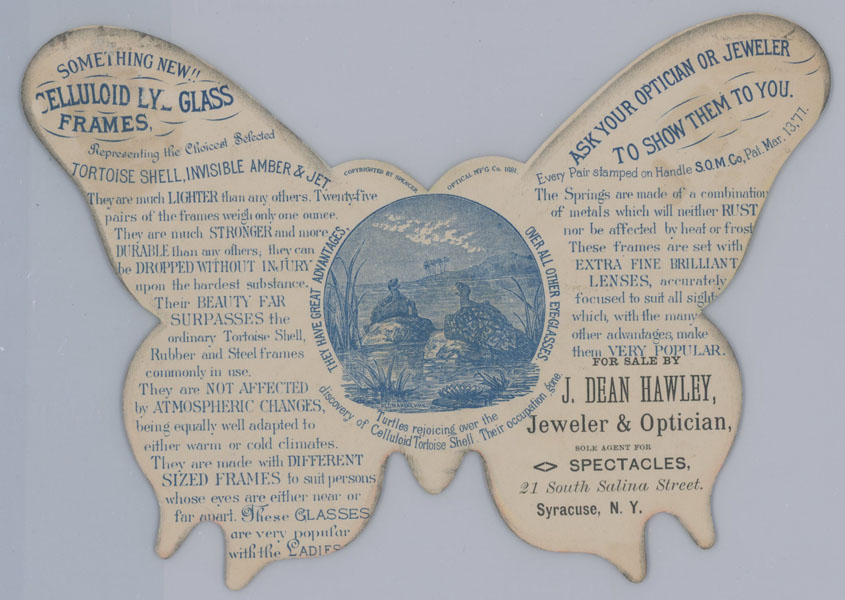 SOMETHING NEW!!
CELLULOID EYE GLASS
FRAMES,
Representing the Choicest Selected
TORTOISE SHELL, INVISIBLE AMBER & JET.
They are much LIGHTER than any others. Twenty-five
pairs of the frames weigh only one ounce.
They are much STRONGER and more
DURABLE than any others; they can
be DROPPED WITHOUT INJURY
upon the hardest substance.
Their BEAUTY FAR
SURPASSES the
ordinary Tortoise Shell,
Rubber and Steel frames
commonly in use.
They are NOT AFFECTED
by ATMOSPHERIC CHANGES,
being equally well adapted to
either warm or cold climates.
They are made with DIFFERENT
SIZED FRAMES to suit persons
whose eyes are either near or
far apart. These GLASSES
are very popular
with the LADIES
COPYRIGHTED BY SPENCER OPTICAL M'F'G Co. 1881.
THEY HAVE GREAT ADVANTAGES, OVER ALL OTHER EYE-GLASSES
Turtles rejoicing over the
discovery of Celluloid Tortoise Shell. Their occupation gone.
ASK YOUR OPTICIAN OR JEWELER
TO SHOW THEM TO YOU.
Every Pair stamped on Handle S.O.M.Co, Pat. Mar. 13, 77.
The Springs are made of a combination
of metals which will neither RUST
nor be affected by heat or frost
These frames are set with
EXTRA FINE BRILLIANT
LENSES, accurately
focused to suit all sight
which, with the many
other advantages, make
them VERY POPULAR.
FOR SALE BY
J. DEAN HAWLEY,
Jeweler & Optician,
SOLE AGENT FOR
<> SPECTACLES,
21 South Salina Street.
Syracuse, N. Y.